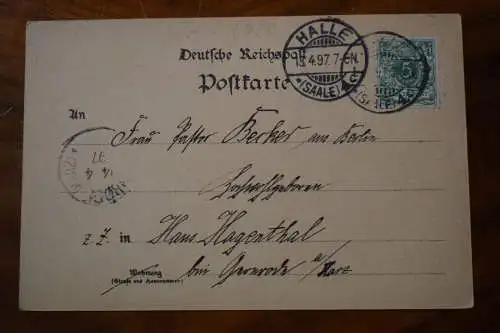 Deutsche Reichspost
Postkarte
HALLE
13.4.97.7-8N.
*(SAALE)
5
(SAALE)
An
Frau Pastor Becker aus Berlin
Hochwohlgeboren
14 4
97
z. Z. in Haus Hagenthal
Wohnung
(Straße und Hausnummer)
bei Gernrode a/Harz